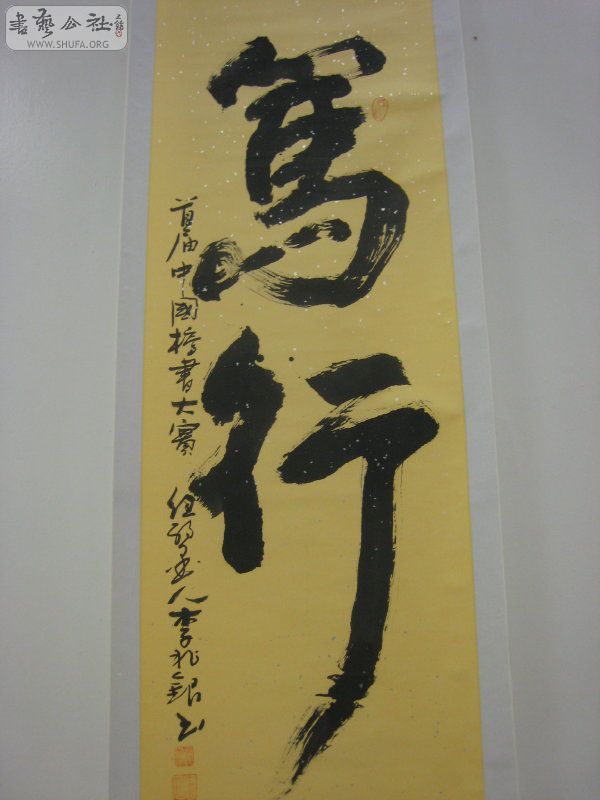 書藝公社
WWW.SHUFA.ORG
篤行
首届中國榜書大賽
人李兆銀书